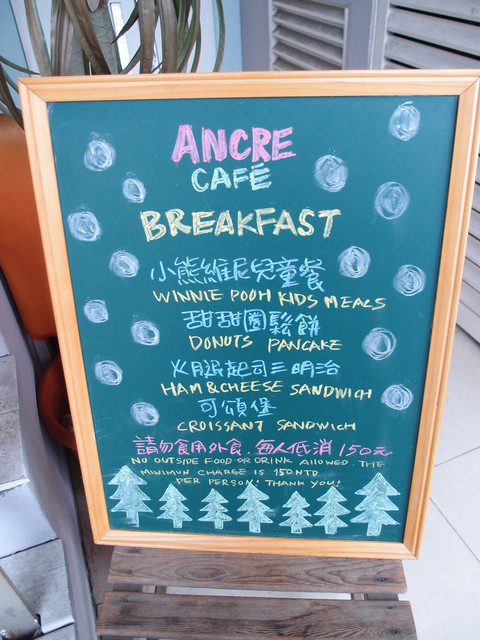 ANCRE
CAFÉ
BREAKFAST
小熊維尼兒童餐
WINNIE POOH KIDS MEALS
甜甜圈鬆餅
DONUTS PANCAKE
火腿起司三明治
HAM & CHEESE SANDWICH
可頌堡
CROISSANT SANDWICH
請勿食用外食.每人低消150元
NO OUTSIDE FOOD OR DRINK ALLOWED. THE
MINIMUN CHARGE IS 150NTD
PER PERSON! THANK YOU!